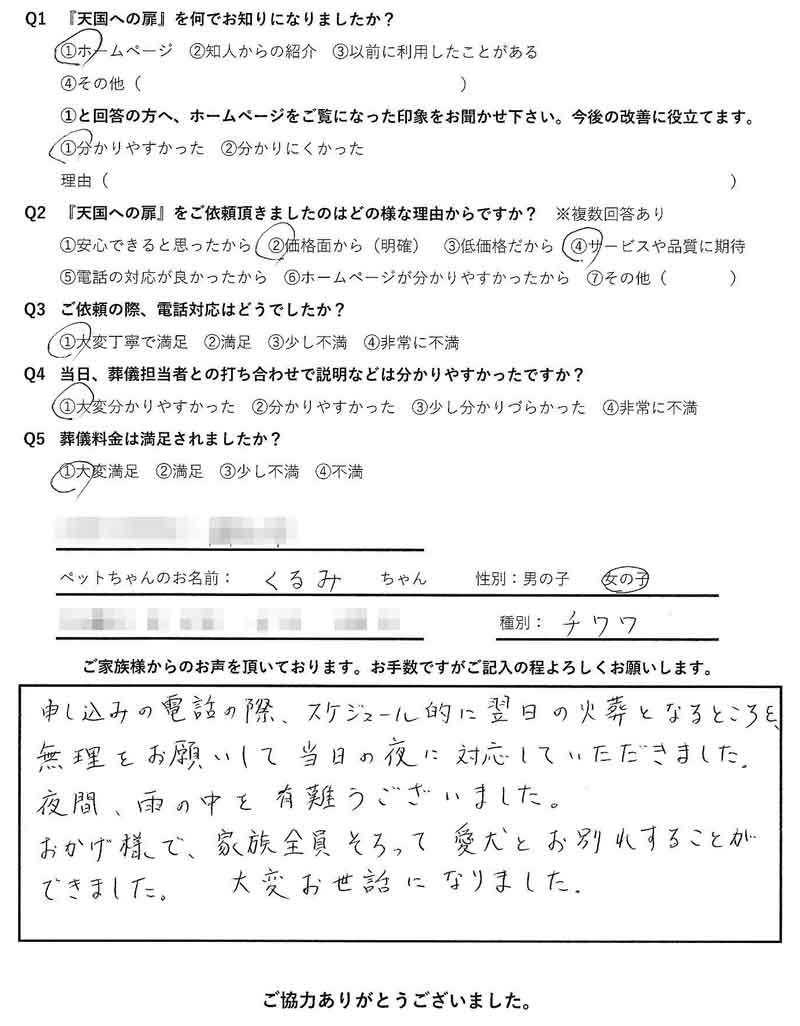 Q1 『天国への扉』を何でお知りになりましたか？
①ホームページ ②知人からの紹介 ③以前に利用したことがある
④その他（ ）
①と回答の方へ、ホームページをご覧になった印象をお聞かせ下さい。今後の改善に役立てます。
①分かりやすかった ②分かりにくかった
理由（ ）
Q2 『天国への扉』をご依頼頂きましたのはどの様な理由からですか？ ※複数回答あり
①安心できると思ったから ②価格面から（明確） ③低価格だから ④サービスや品質に期待
⑤電話の対応が良かったから ⑥ホームページが分かりやすかったから ⑦その他（ ）
Q3 ご依頼の際、電話対応はどうでしたか？
①大変丁寧で満足 ②満足 ③少し不満 ④非常に不満
Q4 当日、葬儀担当者との打ち合わせで説明などは分かりやすかったですか？
①大変分かりやすかった ②分かりやすかった ③少し分かりづらかった ④非常に不満
Q5 葬儀料金は満足されましたか？
①大変満足 ②満足 ③少し不満 ④不満
ペットちゃんのお名前： くるみ ちゃん 性別：男の子 女の子
種別： チワワ
ご家族様からのお声を頂いております。お手数ですがご記入の程よろしくお願いします。
申し込みの電話の際、スケジュール的に翌日の火葬となるところを、
無理をお願いして当日の夜に対応していただきました。
夜間、雨の中を有難うございました。
おかげ様で、家族全員そろって愛犬とお別れすることが
できました。 大変お世話になりました。
ご協力ありがとうございました。